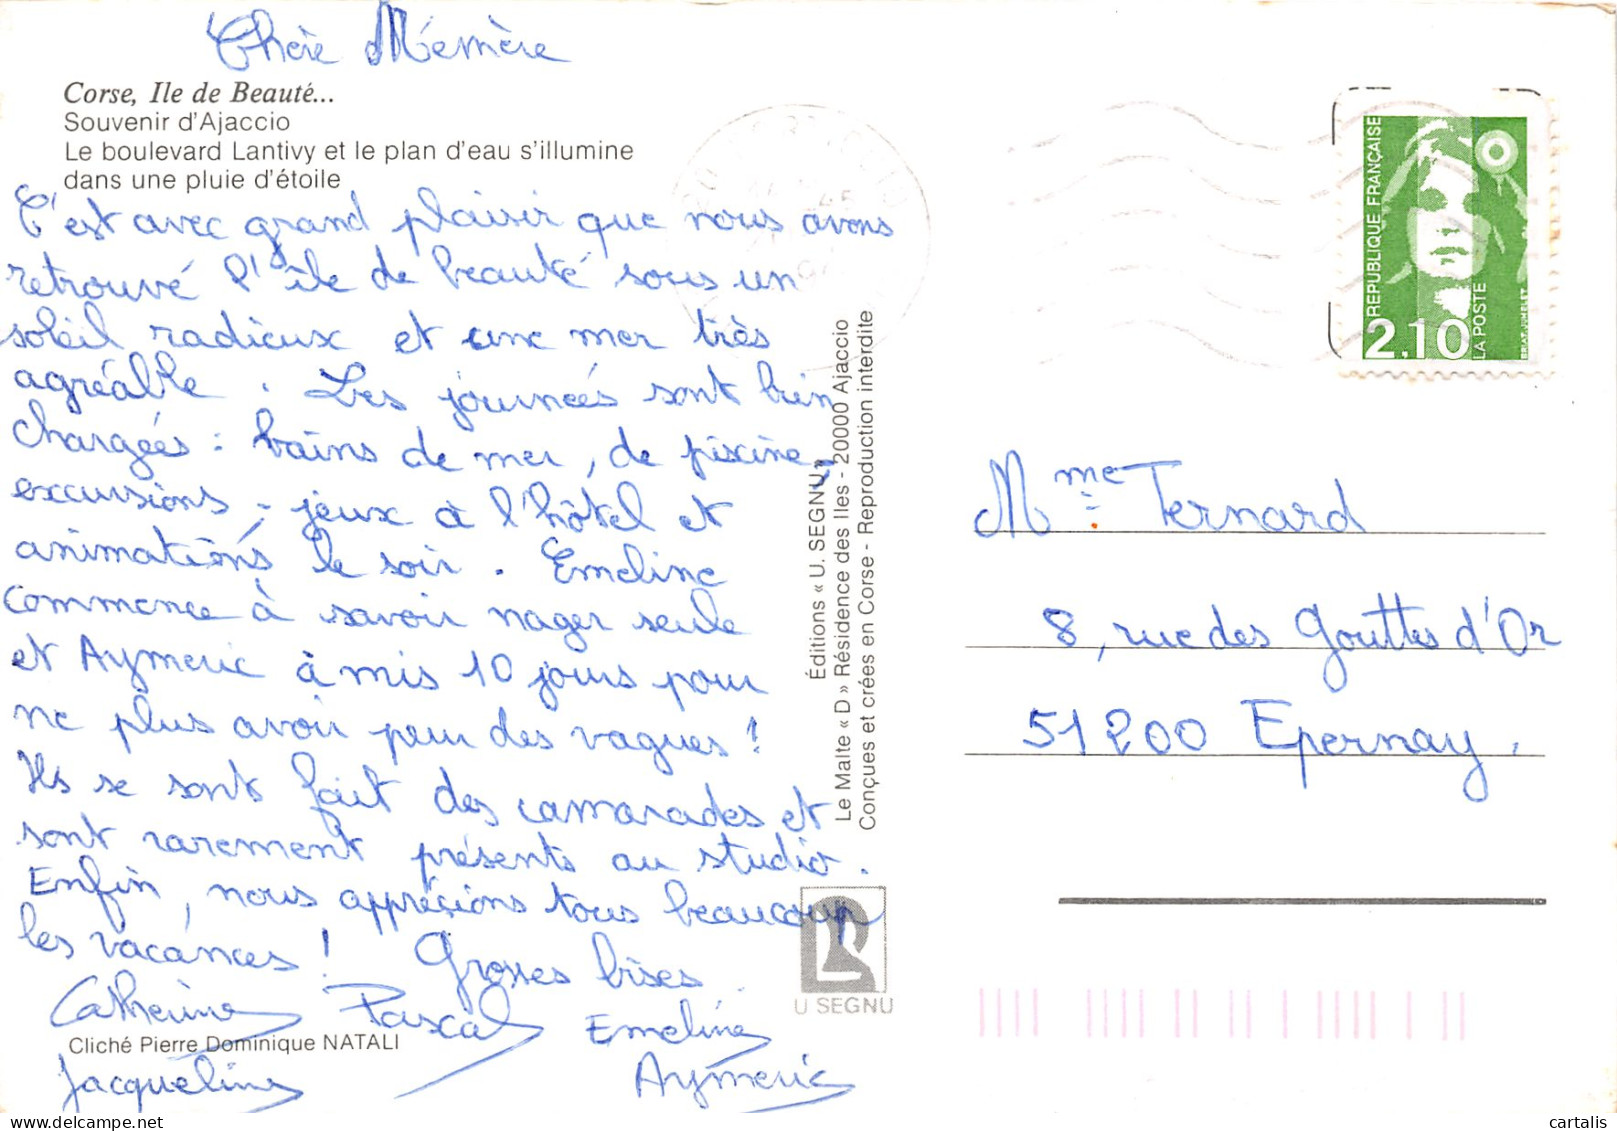 Chère Mémère
Corse, Ile de Beauté...
Souvenir d'Ajaccio
Le boulevard Lantivy et le plan d'eau s'illumine
dans une pluie d'étoile
C'est avec grand plaisir que nous avons
retrouvé l'île de beauté sous un
soleil radieux et une mer très
agréable. Les journées sont bien
chargées : bains de mer, de piscine,
excursions, jeux à l'hôtel et
animations le soir. Emeline
commence à savoir nager seule
et Aymeric à mis 10 jours pour
ne plus avoir peur des vagues !
Ils se sont fait des camarades et
sont rarement présents au studio.
Enfin, nous apprécions tous beaucoup
les vacances ! Grosses bises.
Catherine Pascal Emeline
Cliché Pierre Dominique NATALI
Jacqueline Aymeric
Éditions « U. SEGNU »
Le Malte « D » Résidence des Iles - 20000 Ajaccio
Conçues et crées en Corse - Reproduction interdite
U SEGNU
REPUBLIQUE FRANÇAISE
2,10
LA POSTE
BRIAT-JUMELET
Mme Ternard
8, rue des Gouttes d'Or
51200 Epernay.
cartalis